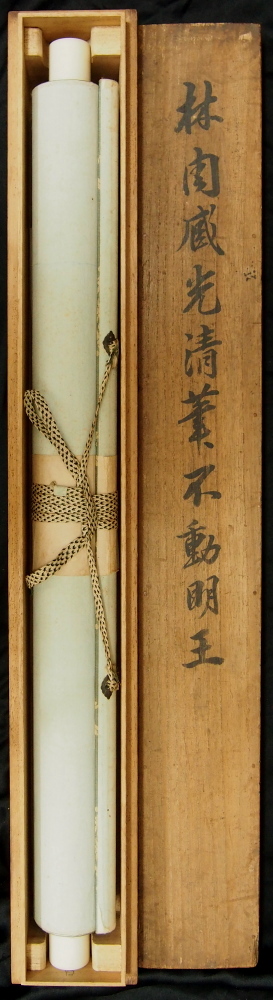 林内蔵光清筆不動明王